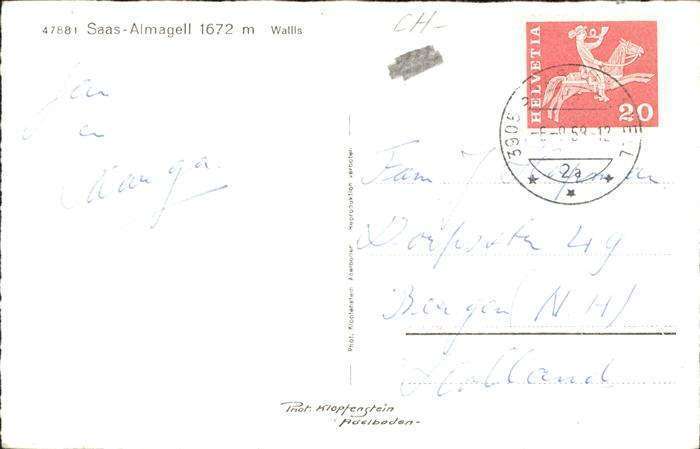 47881 Saas-Almagell 1672 m Wallis
CH-
HELVETIA
20
3905
2a
Jan
en
Marga.
Fam
Dorpsstr 49
Bergen (N H)
Holland
Phot. Klopfenstein Adelboden Reproduktion verboten
Phot. Klopfenstein
Adelboden-